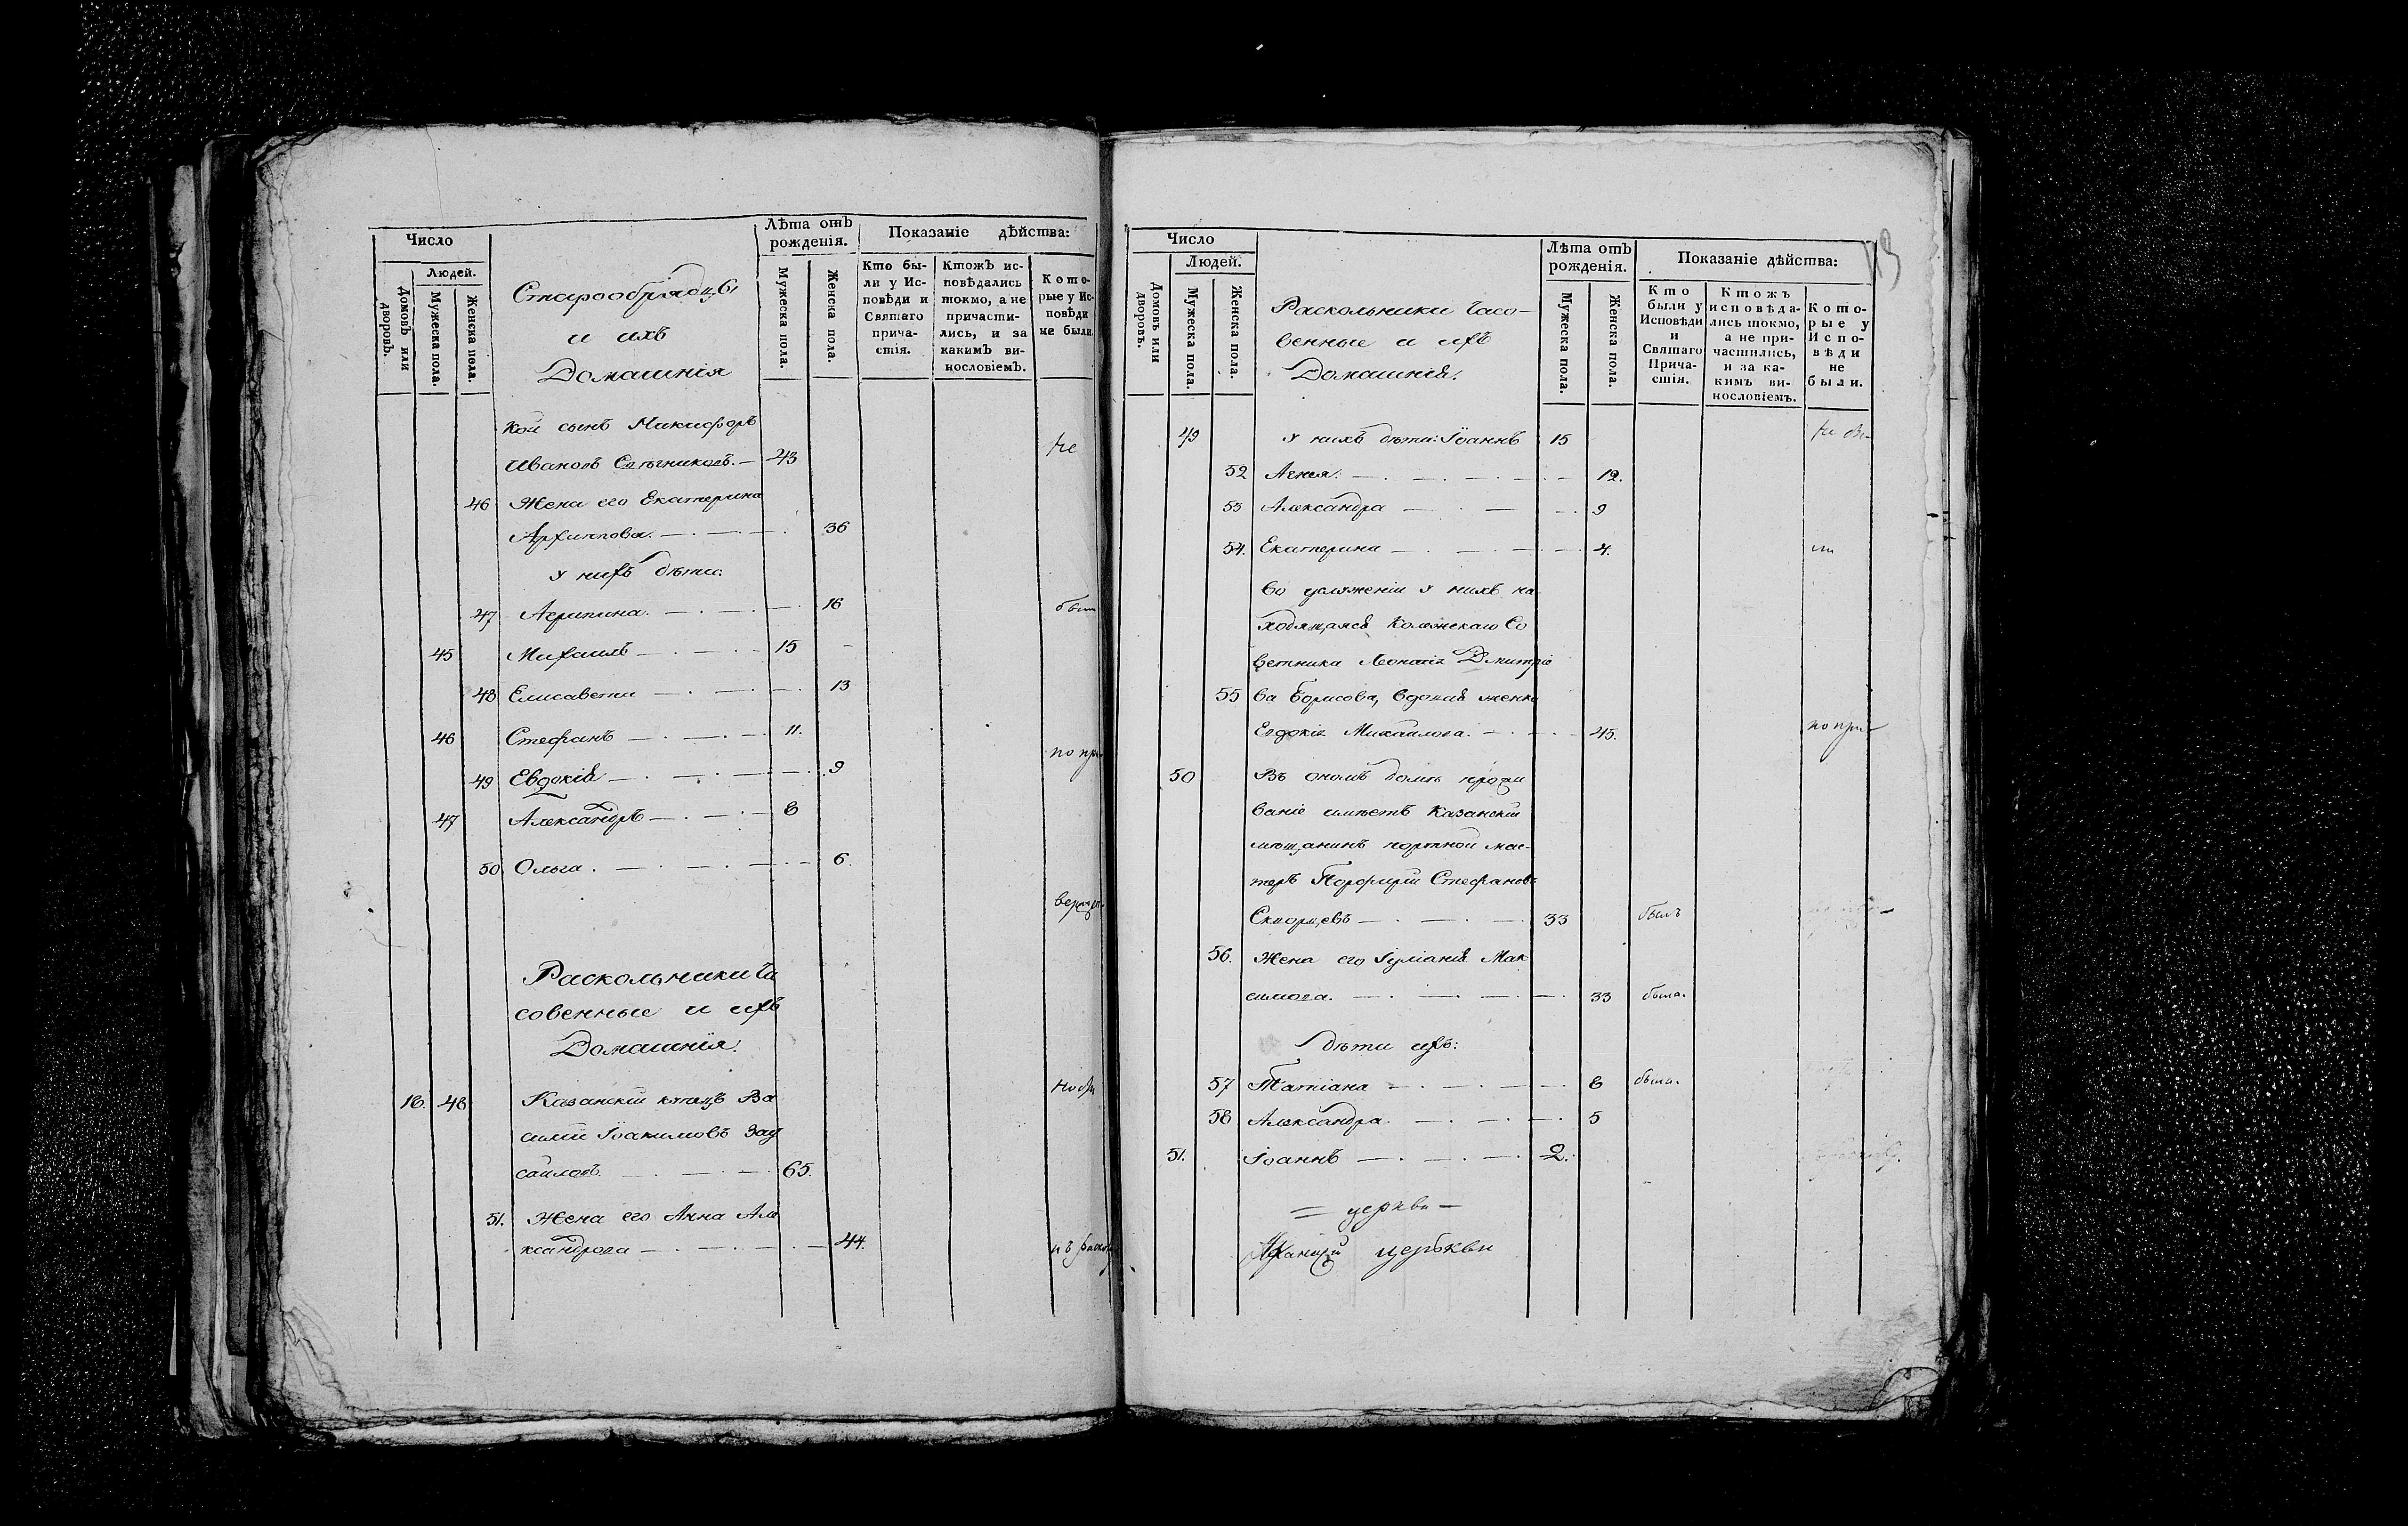 Число
Людей.
Домовъ или дворовъ.
Мужеска пола.
Женска пола.
Старообрядцы
и ихъ
Домашнія
Лѣта отъ рожденія.
Мужеска пола.
Женска пола.
Показаніе дѣйства:
Кто были у Исповѣди и Святаго причастія.
Ктожъ исповѣдались токмо, а не причастились, и за какимъ винословіемъ.
Которые у Исповѣди не были.
кой сынъ Никифоръ
Ивановъ — 43 не
46 Жена его Екатерина
Архиппова. — 36
у нихъ дѣти:
47 Агрипина. — 16 были
45 Михаилъ — 15
48 Елисавета — 13
46 Стефанъ — 11.
по
49 Евдокія — 9
47 Александръ — 8
50 Ольга. — 6.
Раскольники Ча
совенные и ихъ
Домашнія.
18. 48 Казанскій купецъ Ва
силій Іоакимовъ
— 65.
51. Жена его Анна Але
ксандрова — 44.
Число
Людей.
Домовъ или дворовъ.
Мужеска пола.
Женска пола.
Раскольники Часо-
венные и ихъ
Домашнія.
Лѣта отъ рожденія.
Мужеска пола.
Женска пола.
Показаніе дѣйства:
Кто были у Исповѣди и Святаго Причастія.
Ктожъ исповѣдались токмо, а не причастились, и за какимъ винословіемъ.
Которые у Исповѣди не были.
49 у нихъ дѣти: Іоаннъ 15 не
52 Агнія. — 12.
53 Александра — 9
54. Екатерина — 4.
во услуженіи у нихъ на
ходящаяся Колежскаго Со
ветника Дмитріе
55 ва Борисова, вдовая женка
Евдокія Михайлова. — 45. по при-
50 Въ ономъ домѣ прожи
ваніе имѣетъ Казанскій
мѣщанинъ портной мас-
теръ Порфирій Стефановъ
Скворцевъ — 33 былъ
56. Жена его Іуліанія Мак
симова. — 33 была.
Дѣти ихъ:
57 Татіана — 8 была.
58 Александра. — 5
51. Іоаннъ — 2.
= церкви —
церькви